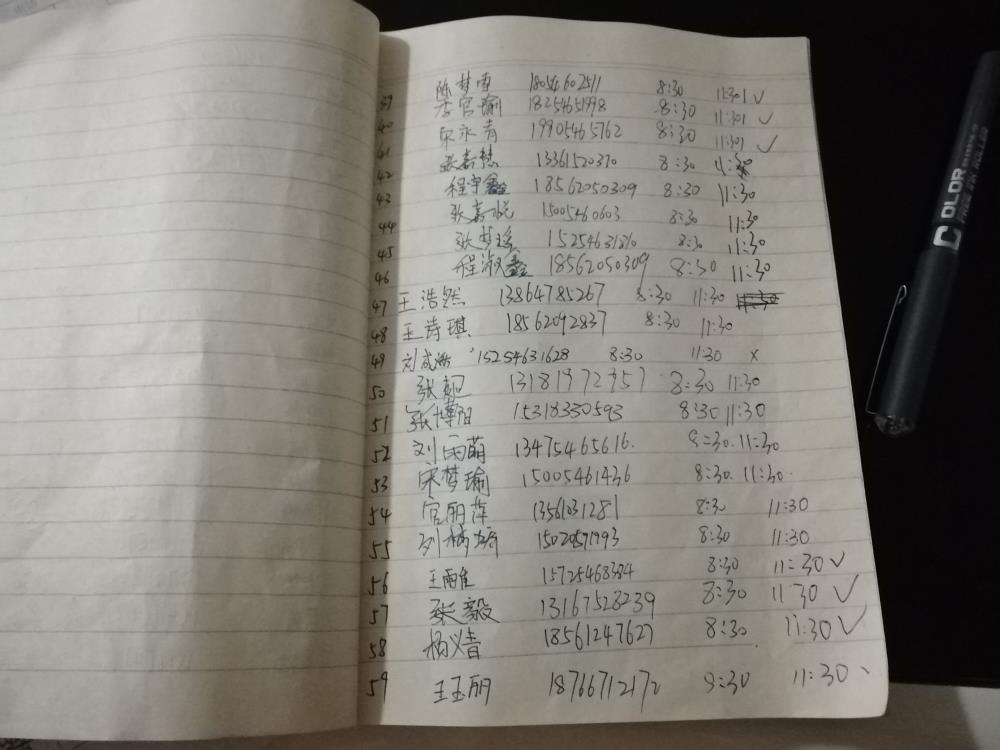 陈梦雪 18054602511 8:30 11:301 ✓
39 李官瑜 18254651998 8:30 11:301 ✓
40 宋永青 19905465762 8:30 11:301 ✓
41 张嘉慧 13361520370 8:30 11:30
42 程宇鑫 18562050309 8:30 11:30
43 张嘉悦 15005460603 8:30 11:30
44 张梦瑶 15254631810 8:30 11:30
45 程淑鑫 18562050309 8:30 11:30
46
47 王浩然 13864785267 8:30 11:30
48 王诗琪 18562092837 8:30 11:30
49 刘成浩 15254631628 8:30 11:30 x
50 张超 13181972957 8:30 11:30
51 张博阳 15318330593 8:30 11:30
52 刘雨萌 13475465616. 8:30. 11:30
53 宋梦瑜 15005461436 8:30. 11:30.
54 官丽萍 13561031281 8:30 11:30
55 刘 15020591993 8:30 11:30
56 王雁 15725468384 8:30 11:30 ✓
57 张毅 13167528239 8:30 11:30 ✓
58 杨义音 18561247627 8:30 11:30 ✓
59 王玉丽 18766712172 9:30 11:30
OLOR
FREE INK ROLLER